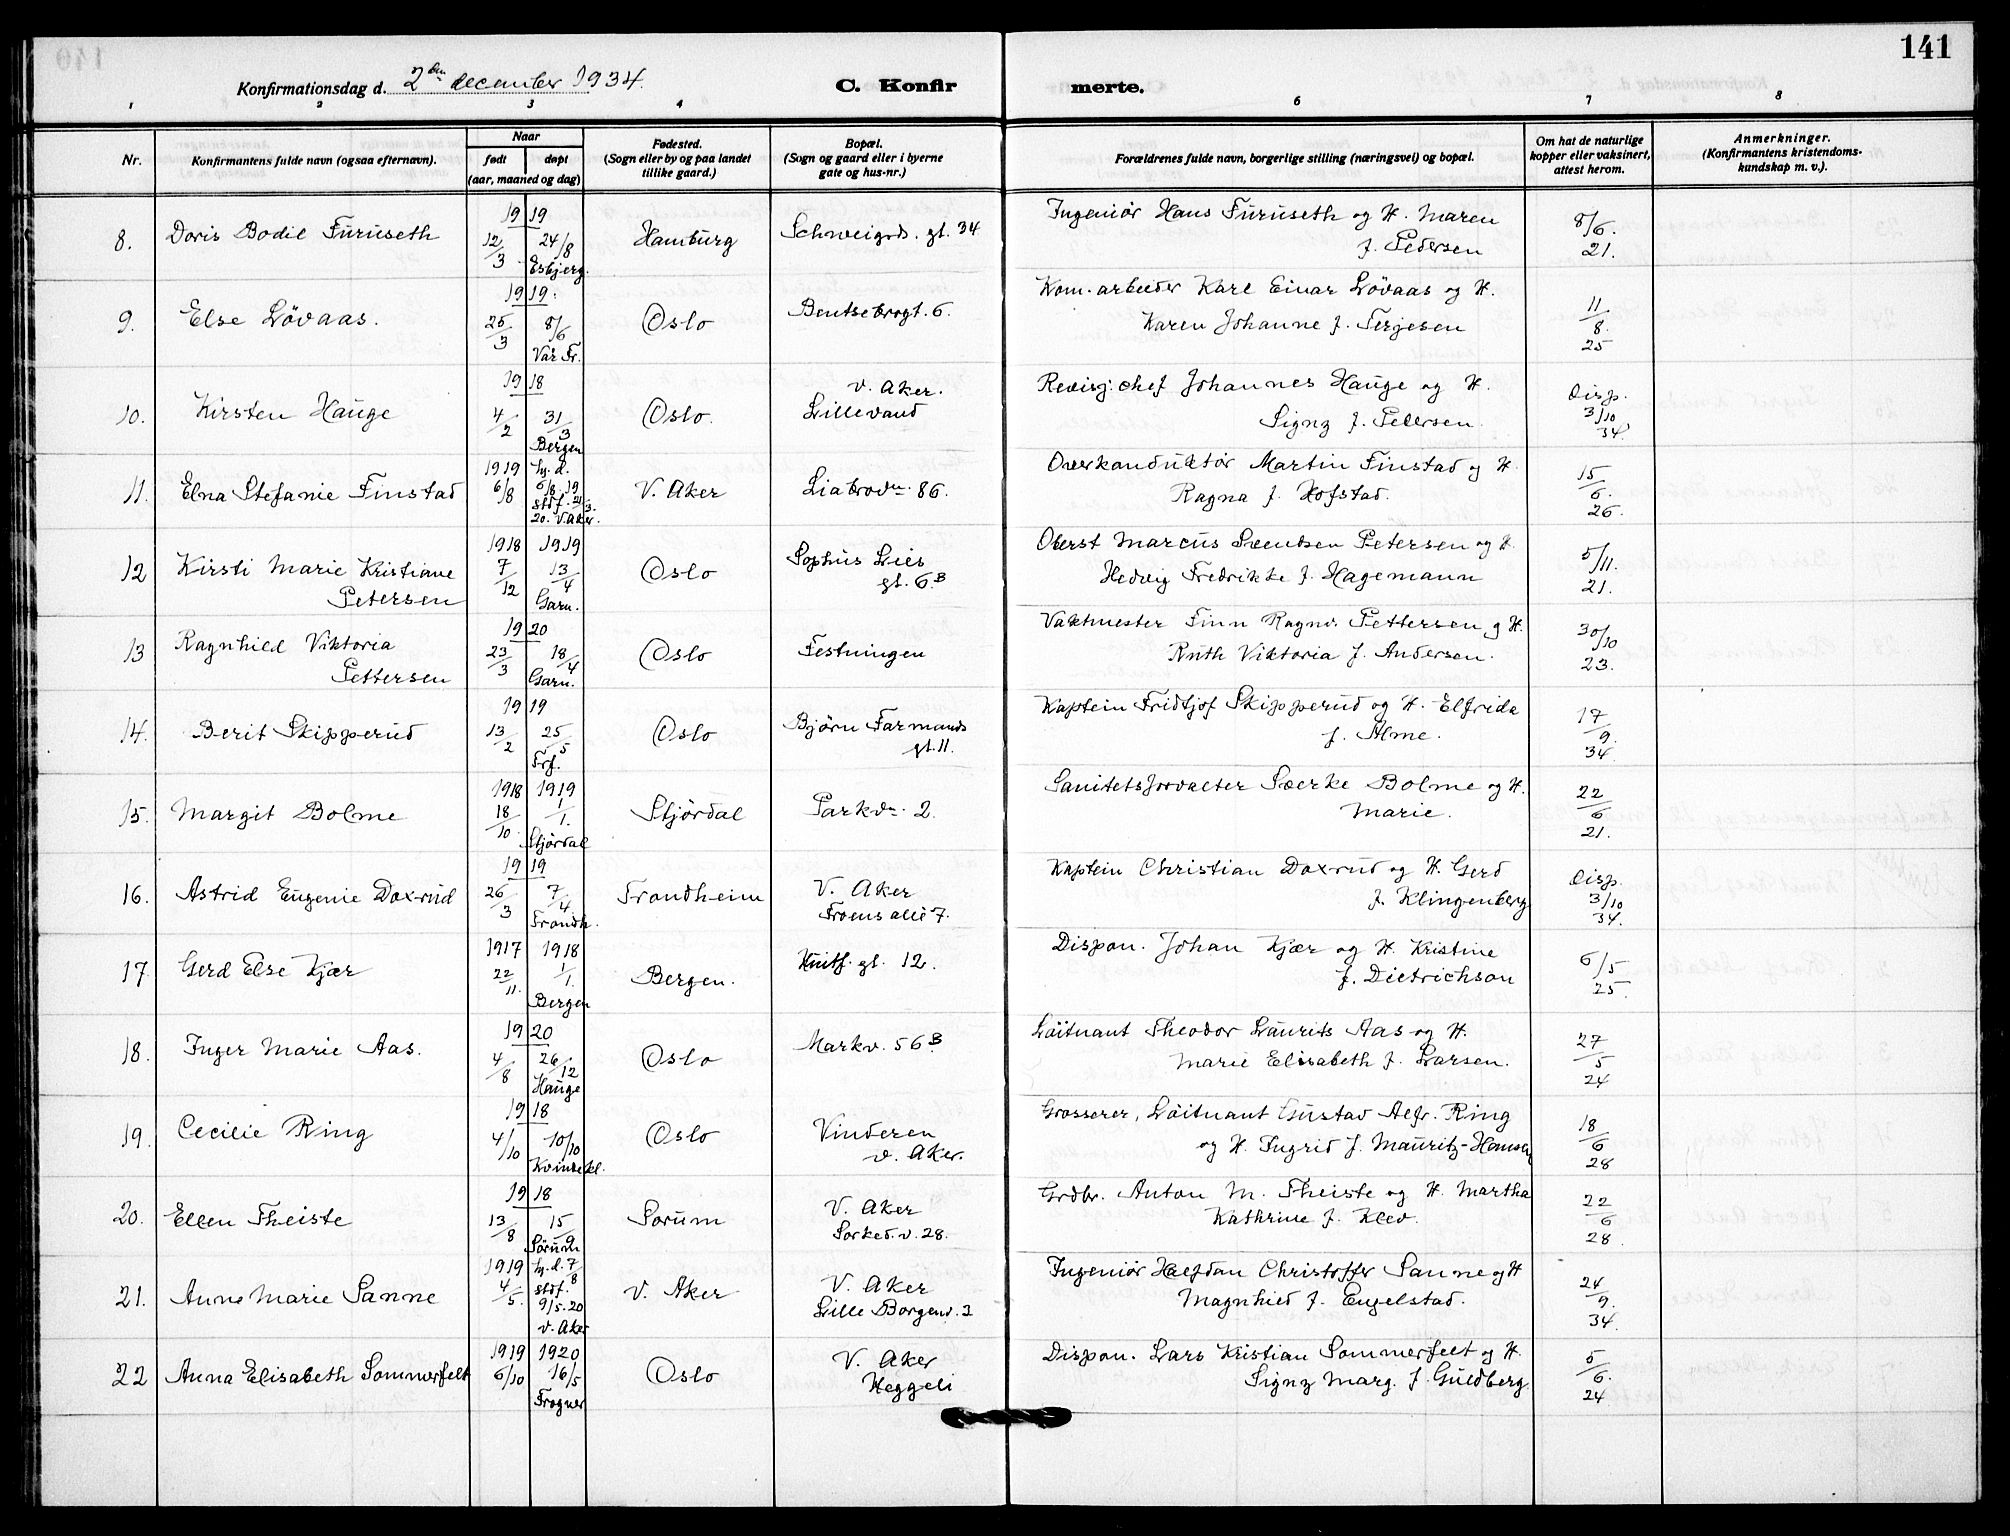 141
Konfirmationsdag d. 2den december 1934.
C. Konfirmerte.
1 2 3 4 6 7 8
Nr.
Konfirmantens fulde navn (ogsaa efternavn).
Naar
født døpt
(aar, maaned og dag)
Fødested.
(Sogn eller by og paa landet
tillike gaard.)
Bopæl.
(Sogn og gaard eller i byerne
gate og hus-nr.)
Forældrenes fulde navn, borgerlige stilling (næringsvei) og bopæl.
Om hat de naturlige
kopper eller vaksinert,
attest herom.
Anmerkninger.
(Konfirmantens kristendoms-
kundskap m. v.).
8. Doris Bodil Furuseth
1919
12/3 24/8
Esbjerg.
Hamburg
Schweigrds. gt. 34
Ingeniør Hans Furuseth og H. Maren
f. Pedersen
8/6.
21.
9. Else Løvaas.
1919.
25/3 8/6
Vår Fr.
Oslo
Bentsebrogt. 6.
Kom. arbeider Karl Einar Løvaas og H.
Karen Johanne f. Terjesen
11/8.
25
10. Kirsten Hauge
1918
4/2 31/3
Bergen
Oslo.
V. Aker.
Lillevand
Revisj. chef Johannes Hauge og H.
Signy f. Pedersen.
Disp.
3/10
34.
11. Elna Stefanie Finstad
1919 hj. d.
6/8 6/8 19
stdf. 21/3.
20. V. Aker.
V. Aker
Liabrovn. 86.
Overkonduktør Martin Finstad og H.
Ragna f. Hofstad.
15/6.
26.
12 Kirsti Marie Kristiane
Petersen
1918 1919
7/12 13/4
Garn.
Oslo
Sophus Lies
gt. 6B
Oberst Marcus Svendsen Petersen og H.
Hedvig Fredrikke f. Hagemann
5/11.
21.
13 Ragnhild Viktoria
Pettersen
1920
23/3 18/4
Garn.
Oslo
Festningen
Vaktmester Finn Ragnv. Pettersen g H.
Ruth Viktoria f. Andersen.
30/10
23.
14. Berit Skipperud
1919
13/2 25/5
Frf.
Oslo
Bjørn Farmands
gt. 11.
Kaptein Fridtjof Skipperud og H. Elfrida
f. Alme.
17/9.
34
15. Margit Bolme
1918 1919
18/10 1/1.
Stjørdal
Stjørdal
Parkvn. 2.
Sanitetsforvalter Sverke Bolme og H.
Marie.
22/6
21.
16. Astrid Eugenie Doxrud
1919
26/3 7/4
Trondh.
Trondheim
V. Aker
Froens allé 7.
Kaptein Christian Doxrud og H. Gerd
f. Klingenberg
Disp.
3/10
34.
17. Gerd Else Kjær
1917 1918
22/11. 1/1.
Bergen
Bergen.
Huitf. gt. 12.
Dispon. Johan Kjær og H. Kristine
f. Dietrichson
6/5
25.
18. Inger Marie Aas.
1920
4/8 26/12
Hauge
Oslo
Markv. 56B.
Løitnant Theodor Laurits Aas og H.
Marie Elisabeth f. Larsen.
27/5
24
19. Cecilie Ring
1918
4/10 10/10
Kvindekl.
Oslo
Vinderen
V. Aker.
Grosserer, Løitnant Gustav Alfr. Ring
og H. Ingrid f. Mauritz-Hansen
18/6
28
20. Ellen Theiste
1918
13/8 15/9
Sørum
Sørum
V. Aker
Sørked. v. 28.
Grdbr. Anton M. Theiste og H. Martha
Kathrine f. Klev.
22/6
28
21. Anne Marie Sanne
1919 hj. d. 7/8
4/5. stdf.
9/5. 20
V. Aker
V. Aker
V. Aker
Lille Borgenv. 3
Ingeniør Halfdan Christoffer Sanne og H
Magnhild f. Engelstad.
24/9.
34.
22 Anna Elisabeth Sommerfelt
1919 1920
6/10 16/5
Frogner
Oslo
V. Aker
Heggeli
Dispon. Lars Kristian Sommerfelt og H.
Signy Marg. f. Guldberg.
5/6.
24